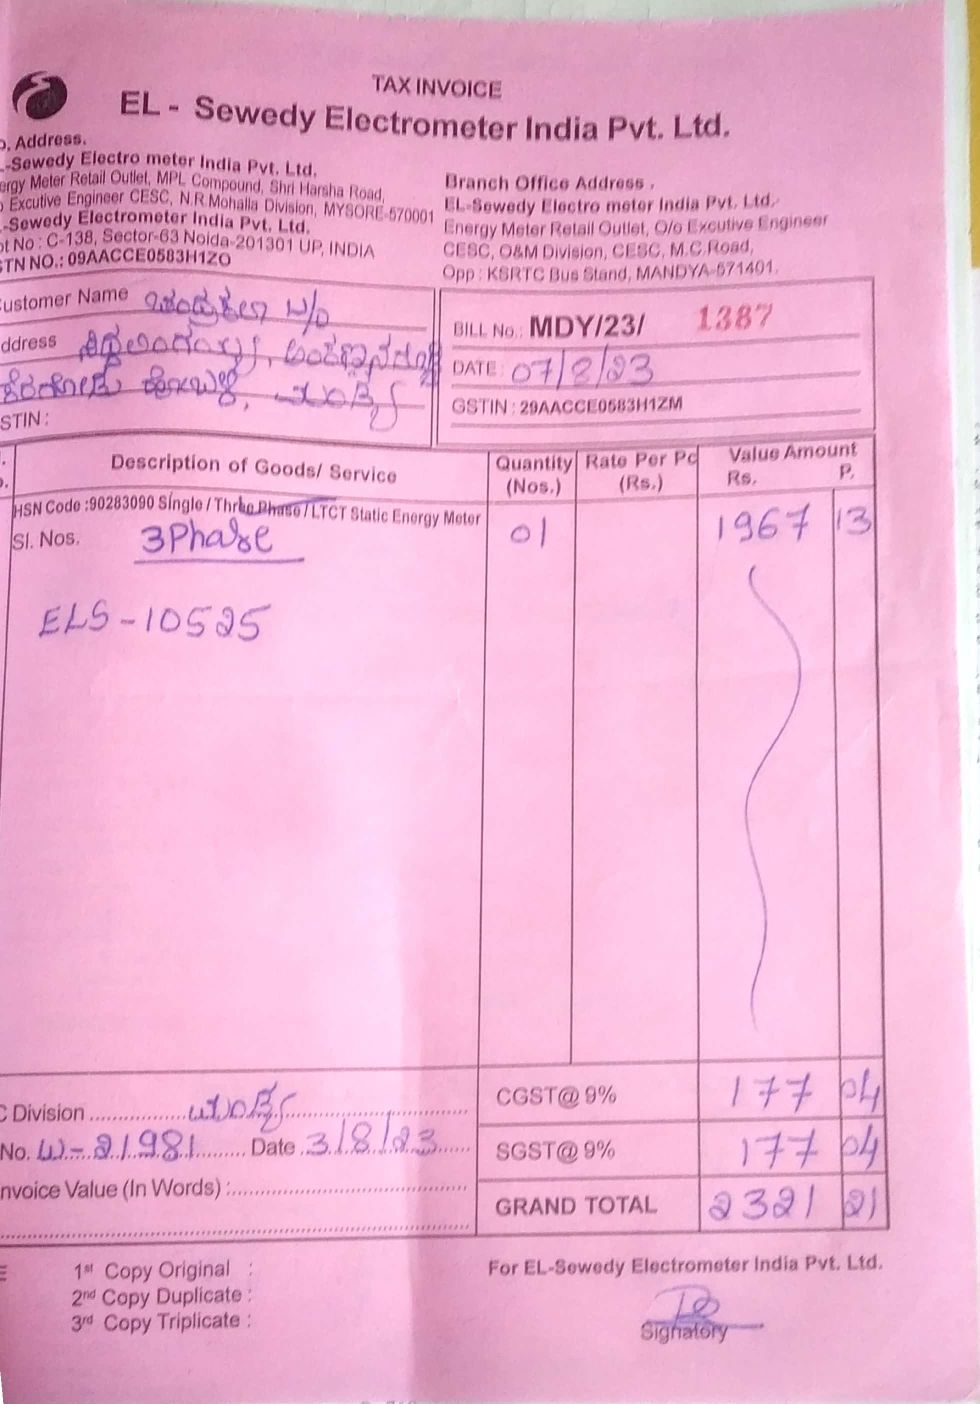 TAX INVOICE
EL - Sewedy Electrometer India Pvt. Ltd.
Address.
-Sewedy Electro meter India Pvt. Ltd.
ergy Meter Retail Outlet, MPL Compound, Shri Harsha Road,
Excutive Engineer CESC, N.R.Mohalla Division, MYSORE-570001
-Sewedy Electrometer India Pvt. Ltd.
ot No : C-138, Sector-63 Noida-201301 UP, INDIA
STN NO.: 09AACCE0583H1ZO
Branch Office Address .
EL-Sewedy Electro meter India Pvt. Ltd.
Energy Meter Retail Outlet, O/o Excutive Engineer
CESC, O&M Division, CESC, M.C.Road,
Opp : KSRTC Bus Stand, MANDYA-571401.
ustomer Name
ddress
STIN :
BILL No.: MDY/23/ 1387
DATE : 07/8/23
GSTIN : 29AACCE0583H1ZM
Description of Goods/ Service
Quantity (Nos.)
Rate Per Pc (Rs.)
Value Amount
Rs. P.
HSN Code :90283090 Single / Three Phase / LTCT Static Energy Meter
Sl. Nos. 3Phase 01 1967 13
ELS-10525
C Division ಮಂಡ್ಯ
CGST@ 9% 177 04
No. W-21981 Date 3/8/23
SGST@ 9% 177 04
nvoice Value (In Words) :
GRAND TOTAL 2321 21
1st Copy Original :
2nd Copy Duplicate :
3rd Copy Triplicate :
For EL-Sewedy Electrometer India Pvt. Ltd.
Signatory